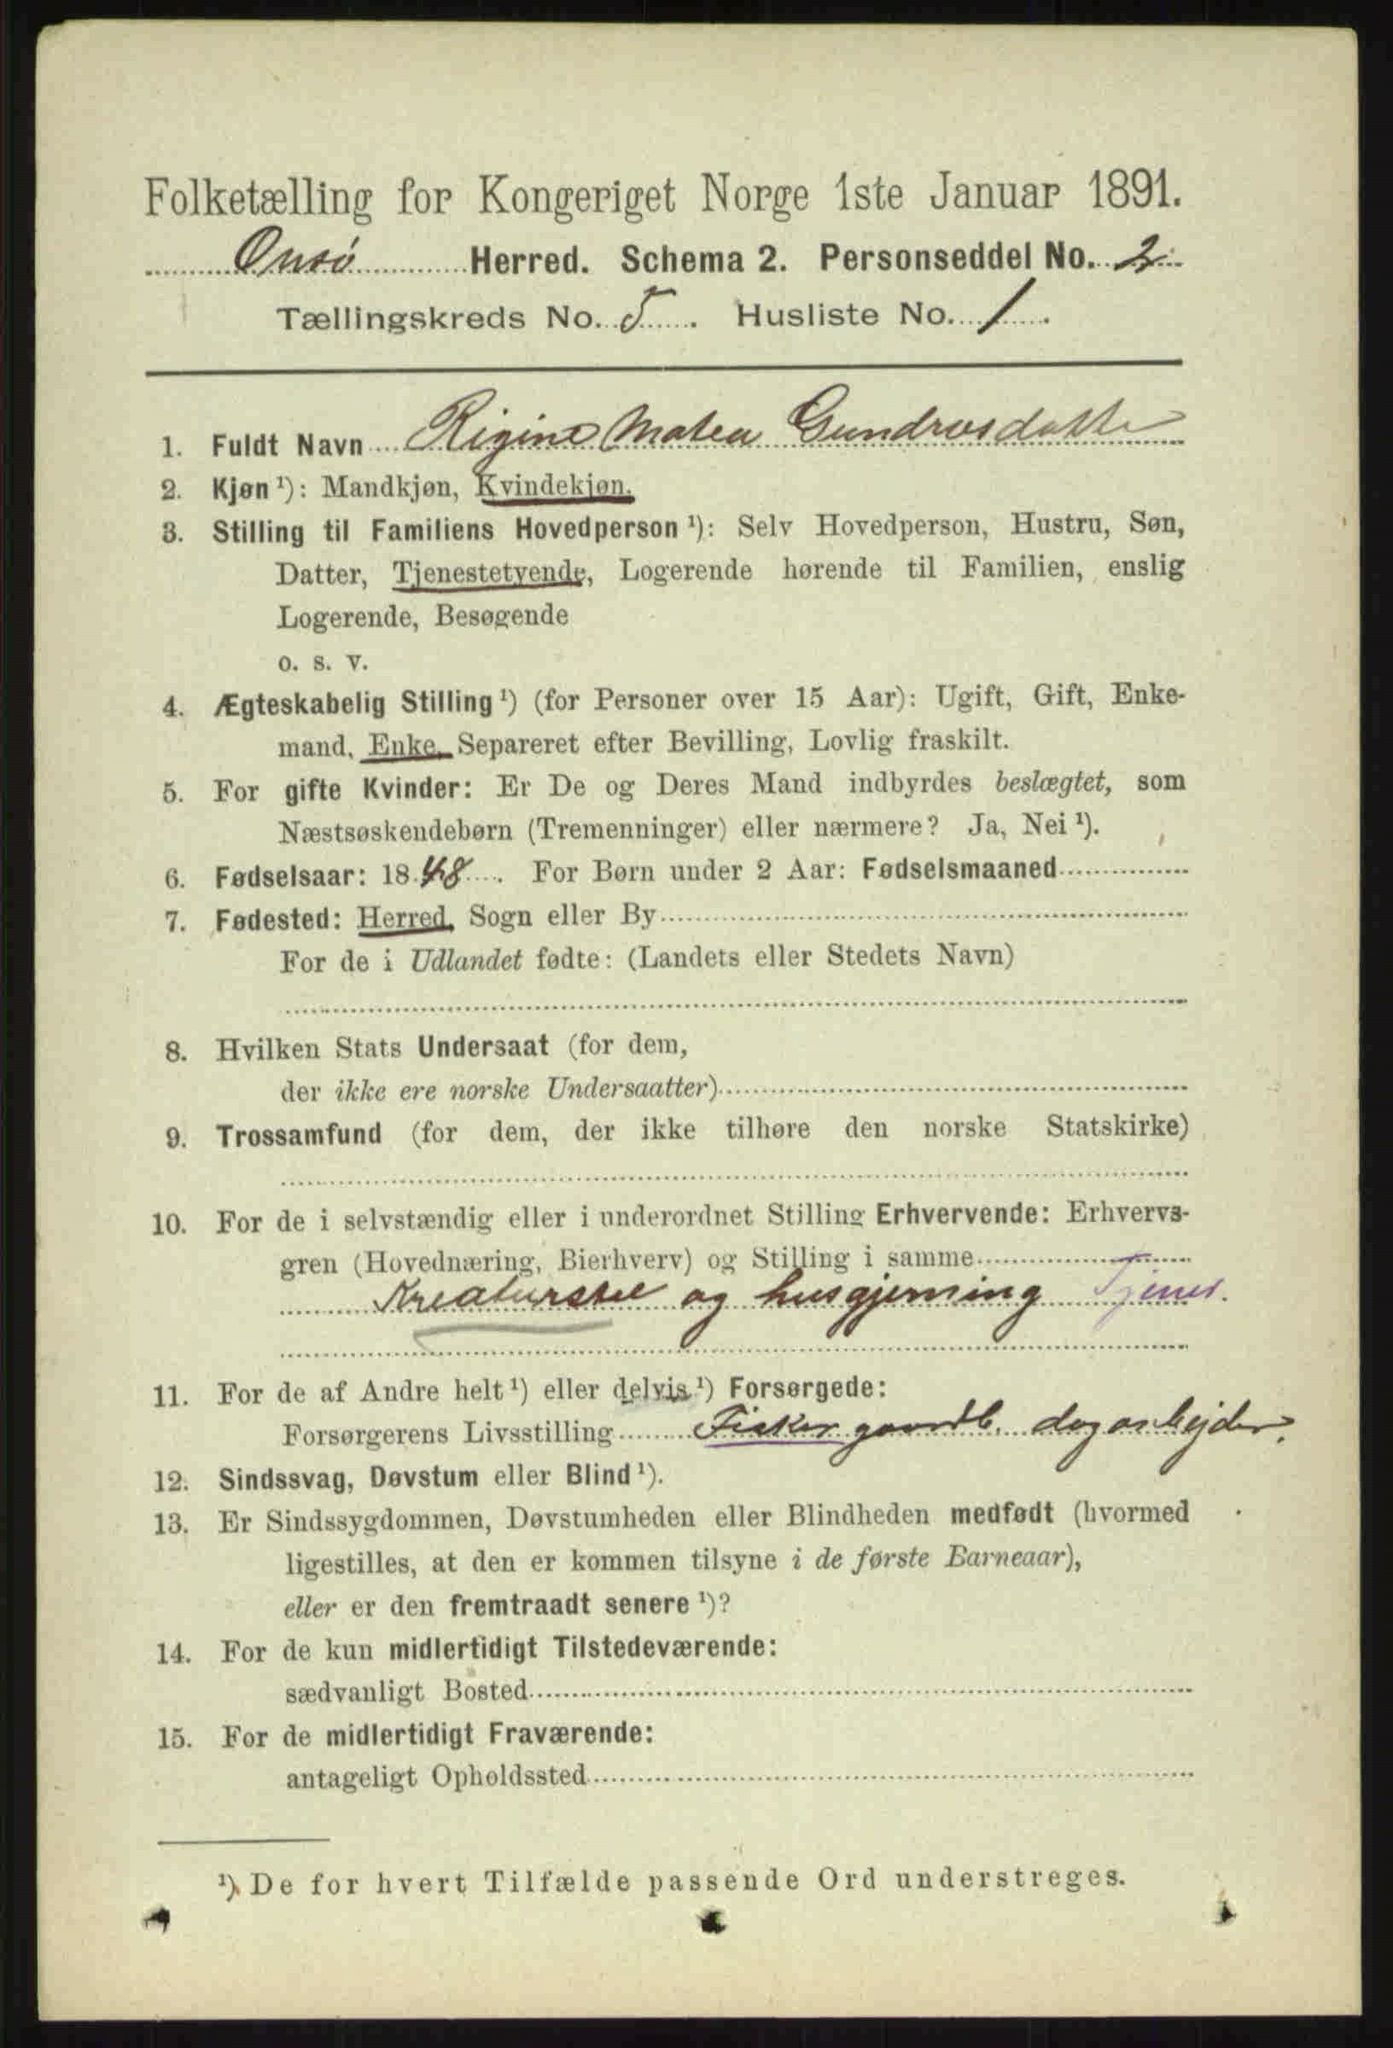 Folketælling for Kongeriget Norge 1ste Januar 1891.
Onsø Herred. Schema 2. Personseddel No. 2
Tællingskreds No. 5. Husliste No. 1.
1. Fuldt Navn Rigine Matea Gundrosdatte
2. Kjøn ¹): Mandkjøn, Kvindekjøn.
3. Stilling til Familiens Hovedperson ¹): Selv Hovedperson, Hustru, Søn,
Datter, Tjenestetyende, Logerende hørende til Familien, enslig
Logerende, Besøgende
o. s. v.
4. Ægteskabelig Stilling ¹) (for Personer over 15 Aar): Ugift, Gift, Enke-
mand, Enke, Separeret efter Bevilling, Lovlig fraskilt.
5. For gifte Kvinder: Er De og Deres Mand indbyrdes beslægtet, som
Næstsøskendebørn (Tremenninger) eller nærmere? Ja, Nei ¹).
6. Fødselsaar: 1848. For Børn under 2 Aar: Fødselsmaaned
7. Fødested: Herred, Sogn eller By
For de i Udlandet fødte: (Landets eller Stedets Navn)
8. Hvilken Stats Undersaat (for dem,
der ikke ere norske Undersaatter)
9. Trossamfund (for dem, der ikke tilhøre den norske Statskirke)
10. For de i selvstændig eller i underordnet Stilling Erhvervende: Erhvervs-
gren (Hovednæring, Bierhverv) og Stilling i samme
Kreaturstel og husgjerning Tjener.
11. For de af Andre helt ¹) eller delvis ¹) Forsørgede:
Forsørgerens Livsstilling Fisker gaardb. dagarbejder.
12. Sindssvag, Døvstum eller Blind ¹).
13. Er Sindssygdommen, Døvstumheden eller Blindheden medfødt (hvormed
ligestilles, at den er kommen tilsyne i de første Barneaar),
eller er den fremtraadt senere ¹)?
14. For de kun midlertidigt Tilstedeværende:
sædvanligt Bosted
15. For de midlertidigt Fraværende:
antageligt Opholdssted
¹) De for hvert Tilfælde passende Ord understreges.